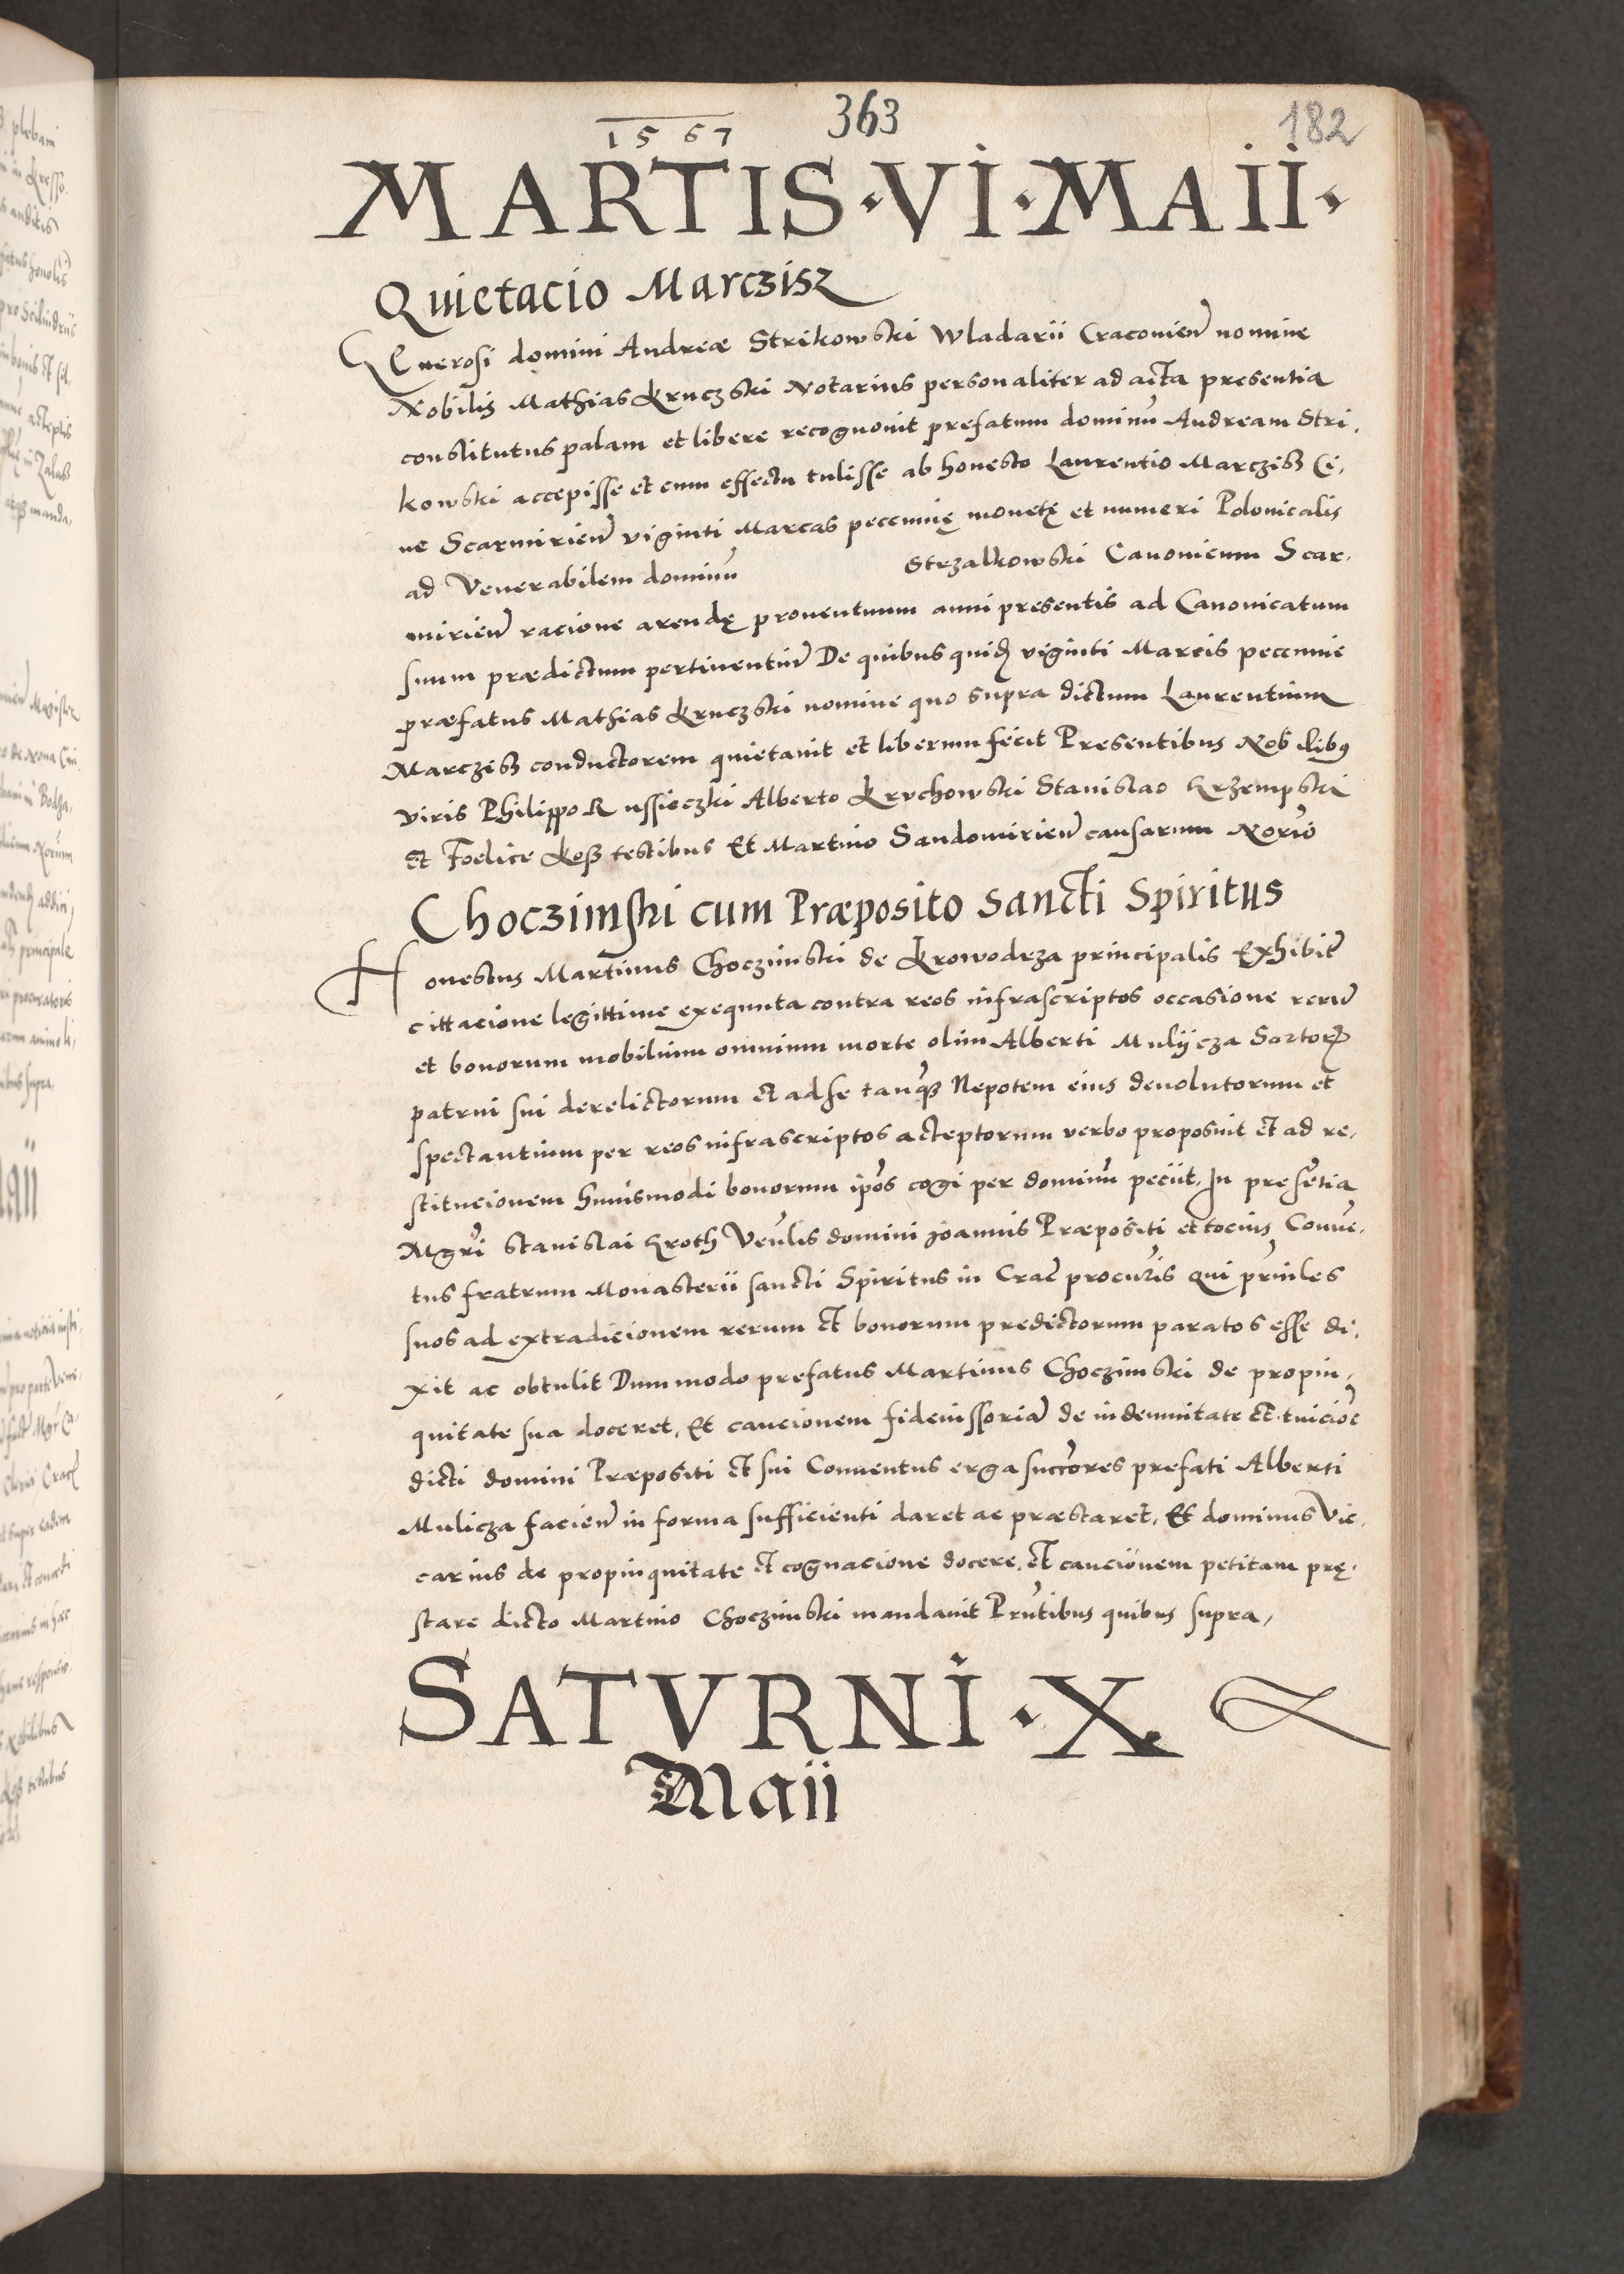 363
182
1567
MARTIS · VI · MAII ·
Quietacio Marczisz
Generosi domini Andreæ Strikowski Wladarii Cracovien̄ nomine
Nobilis Mathias Kruczski Notarius personaliter ad acta presentia
constitutus palam et libere recognovit prefatum dominū Andream Stri,
kowski accepisse et cum effectu tulisse ab honesto Laurentio Marczisz Ci,
ve Scarmirien̄ viginti Marcas peccunię monetę et numeri Polonicalis
ad Venerabilem dominū Strzalkowski Canonicum Scar,
mirien̄ racione arendę proventuum anni presentis ad Canonicatum
suum prædictum pertinentiū De quibus quid viginti Marcis peccunie
præfatus Mathias Kruczski nomine quo supra dictum Laurentium
Marczisz conductorem quietavit et liberum fecit Presentibus Nobilibus
viris Philippo Russieczki Alberto Kruchowski Stanislao Krzempski
Et Foelice Kosz testibus Et Martino Sandomirien̄ causarum Norio
Choczimski cum Præposito Sancti Spiritus
Honestus Martinus Choczimski de Krowodrza principalis Exhibit
cittacione legittime exequuta contra reos infrascriptos occasione rerū
et bonorum mobilium omnium morte olim Alberti Mulijcza Sartoris
patrui sui derelictorum et ad se tanq̄ Nepotem eius devolutorum et
spectantium per reos infrascriptos acceptorum verbo proposuit et ad re,
stitucionem huiusmodi bonorum ipōs cogi per dominū peciit, In presētia
Mgrī Stanislai Kroth Venēlis domini Joannis Præpositi et tocius Convē,
tus fratrum Monasterii sancti Spiritus in Crac̄ procurīs Qui prinles
suos ad extradicionem rerum et bonorum predictorum paratos esse di,
xit ac obtulit Dummodo prefatus Martinus Choczimski de propin,
quitate sua doceret, Et caucionem fideiussoriā de indemnitate et tuicioē
dicti domini Præpositi et sui Conventus erga succōres prefati Alberti
Mulicza facien̄ in forma sufficienti daret ac præstaret, Et dominus Vic,
carius de propinquitate et cognacione docere, et caucionem petitam prę,
stare dicto Martino Choczimski mandavit Prn̄tibus quibus supra,
SATVRNI · X
Maii